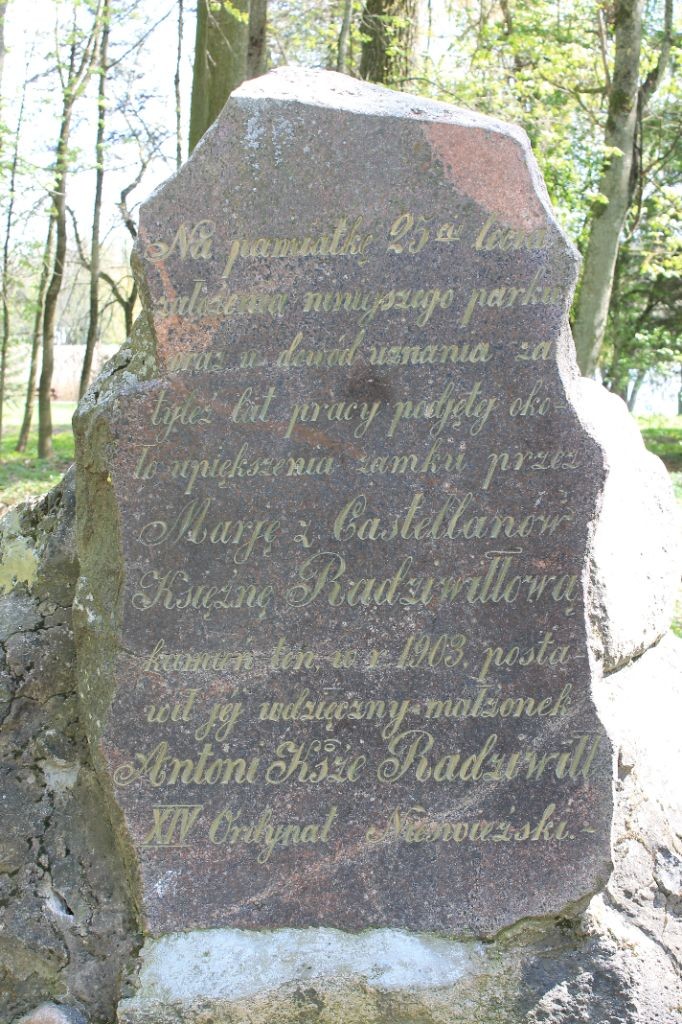 Na pamiątkę 25ciolecia
założenia niniejszego parku
oraz w dowód uznania za
tyleż lat pracy podjętej oko-
ło upiększenia zamku przez
Marję z Castellanów
Księżnę Radziwiłłową
kamień ten w r. 1903. posta
wił jej wdzięczny małżonek
Antoni Ksże Radziwiłł
XIV Ordynat Nieświeżski.-